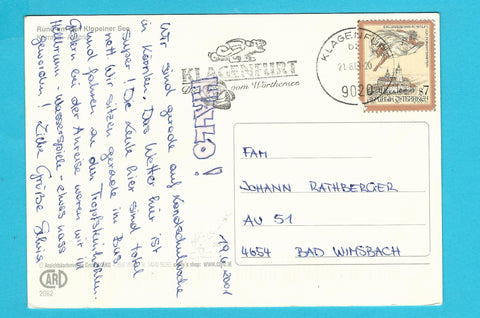 Rund um den Klopeiner See
HALLO!
Wir sind gerade auf Landschulwoche
in Kärnten. Das Wetter hier ist
super! Die Leute hier sind total
nett. Wir sitzen gerade im Bus
und fahren zu den Tropfsteinhöhlen.
Gestern bei der Anreise waren wir in
Hellbrunn - Wasserspiele - etwas nass
geworden! Liebe Grüße
19.6.2001
KLAGENFURT
vom Wörthersee
KLAGENFURT
9020
REPUBLIK ÖSTERREICH
S7
FAM
JOHANN RATHBERGER
AU 51
4654 BAD WIMSBACH
CARD
2062